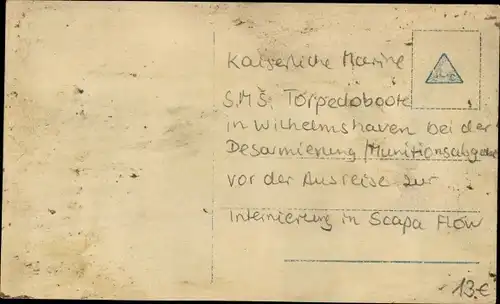 Kaiserliche Marine
S.M.S. Torpedoboote
in Wilhelmshaven bei der
Desarmierung/Munitionsabgabe
vor der Ausreise zur
Internierung in Scapa Flow
13€